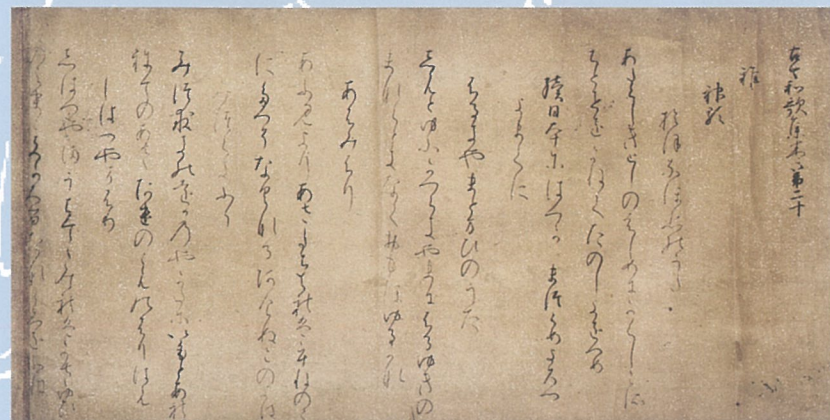 古今和歌集巻第二十
雑
神歌
おほなほひのうた
あたらしきとしのはしめにかくしこそ
ちとせをかねてたのしきをつめ
續日本紀にはつかへまつらめよろつ
よまてに
ふるきやまとまひのうた
しもとゆふかつらきやまにふるゆきの
まなくときなくおもほゆるかな
あふみふり
あふみよりあさたちくれはうねのの
にたつそなくなるあけぬこのよは
みつくきふり
みつくきのをかのやかたにいもとあれ
ねてのあさけのしものふりはも
しはつやまふり
しはつやまうちいてゝみれはかさゆひ